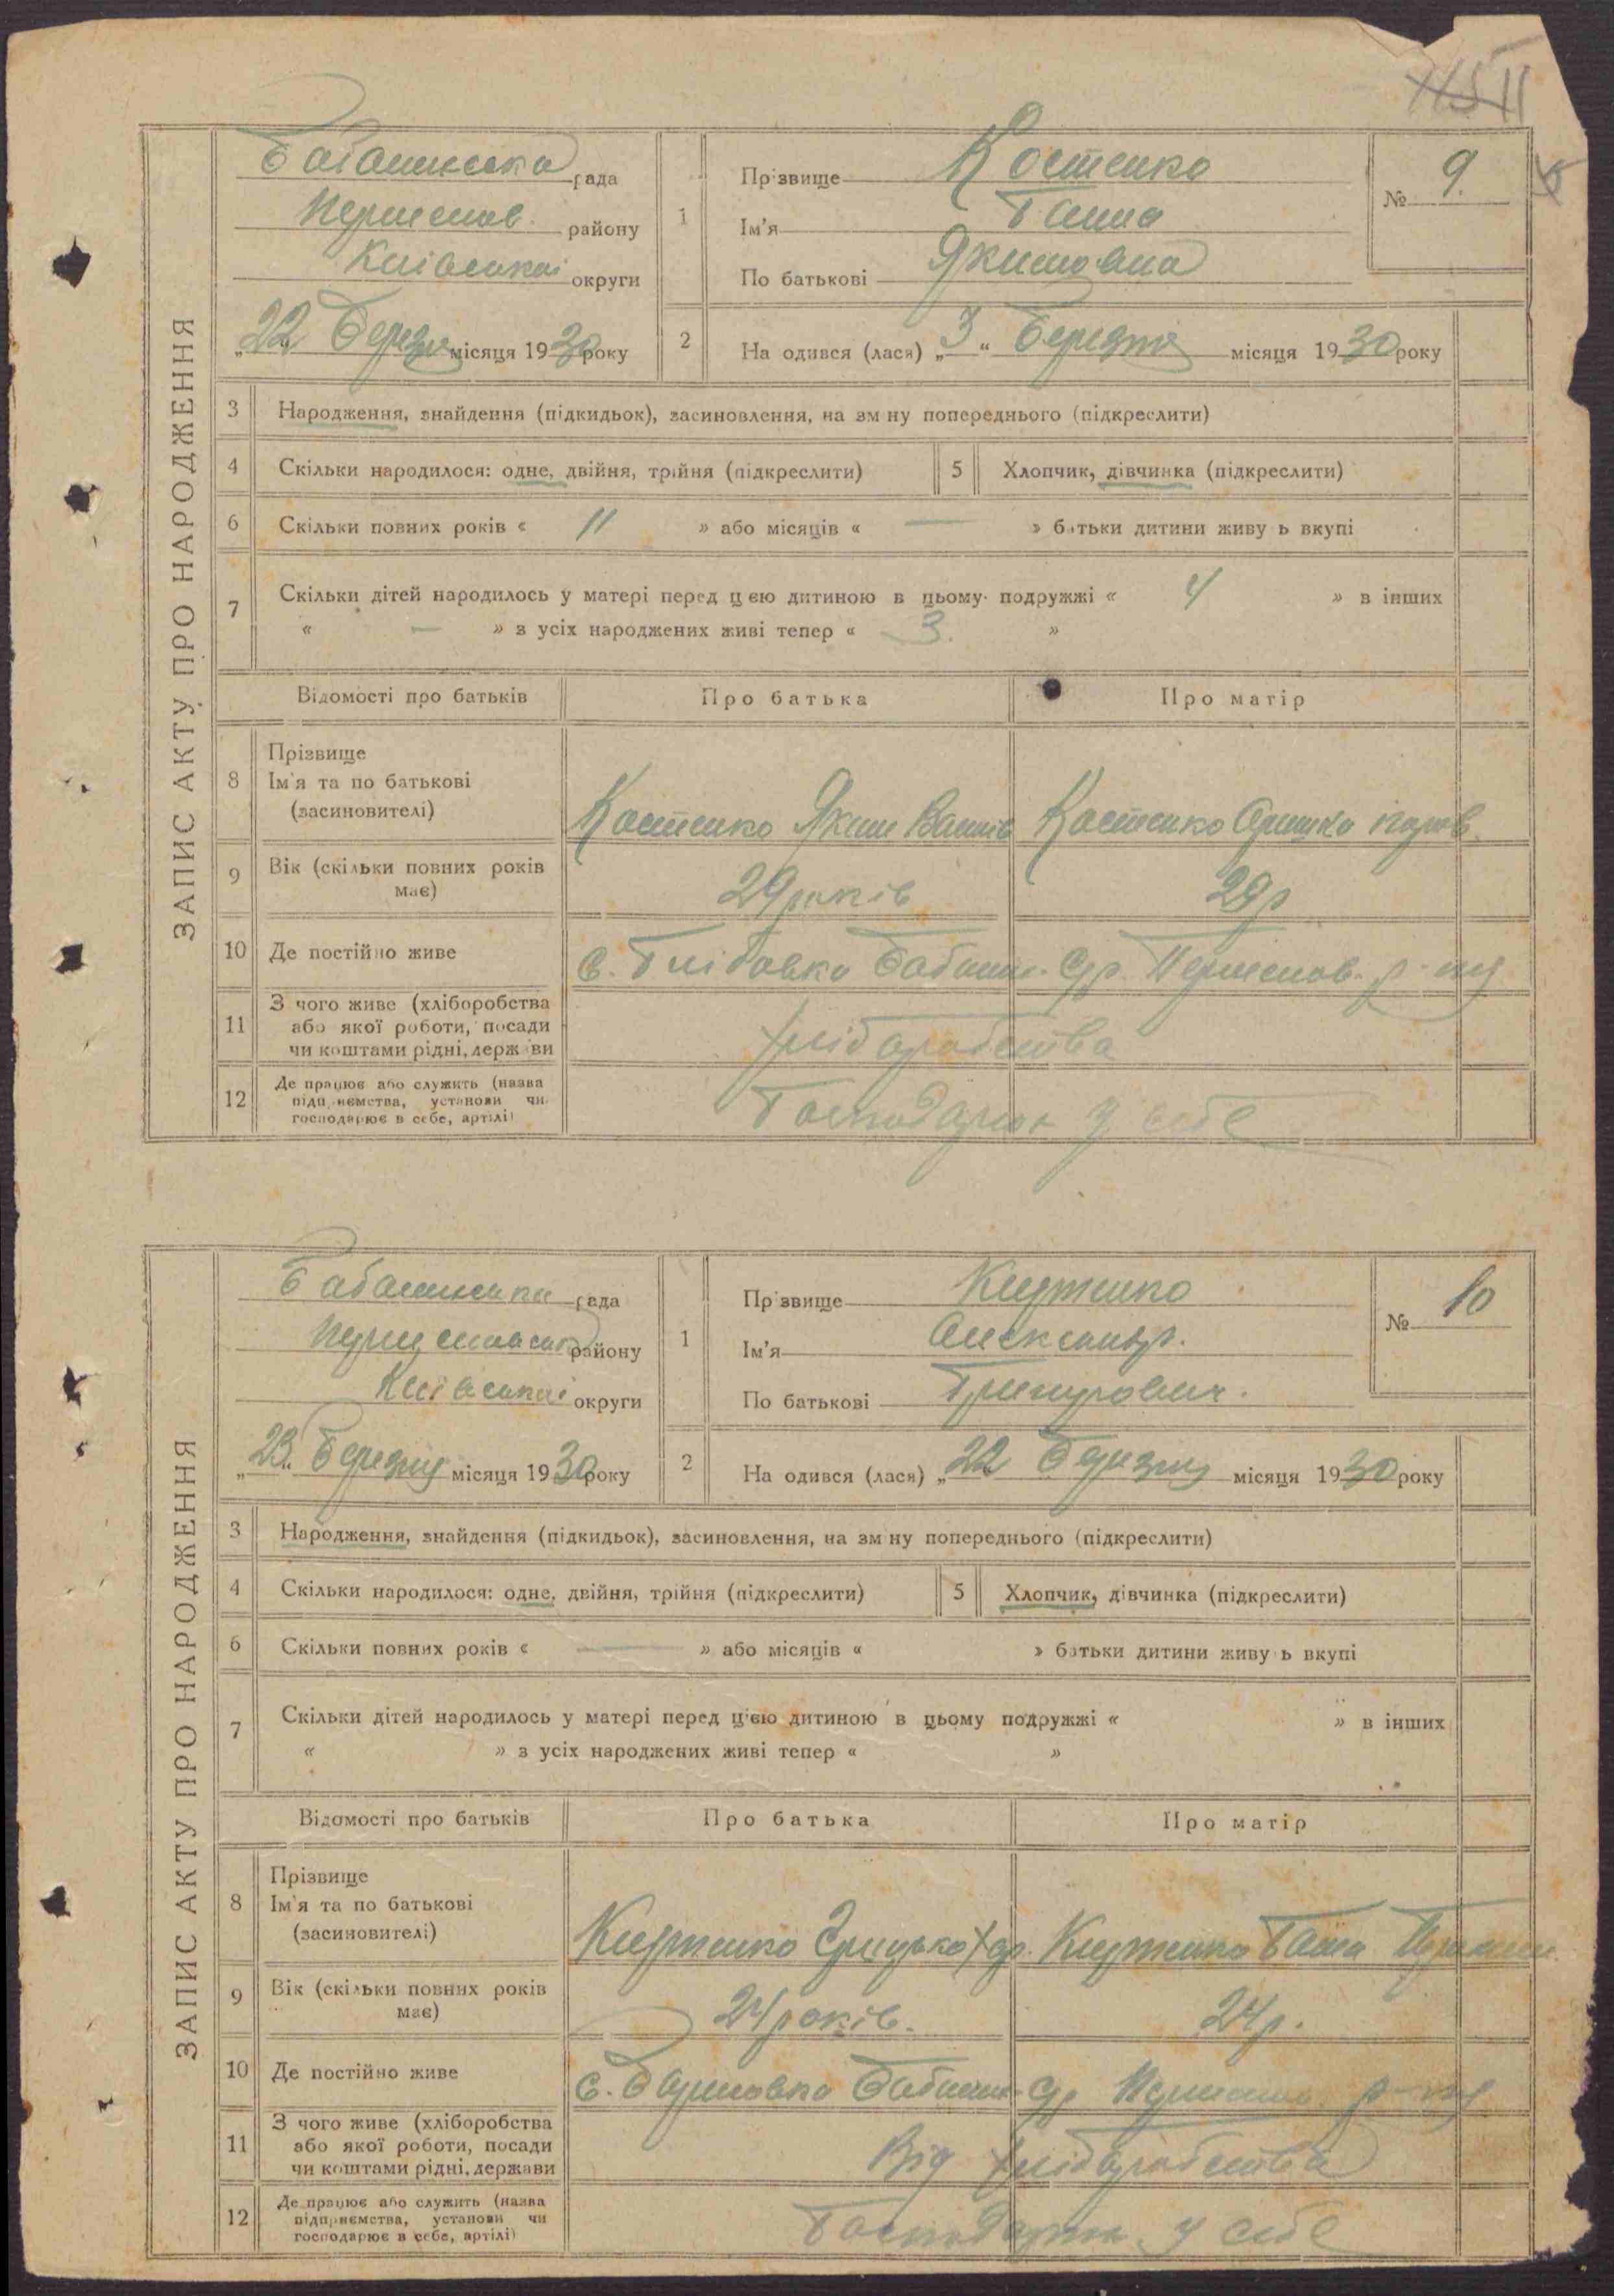 ЗАПИС АКТУ ПРО НАРОДЖЕННЯ
Бабашинська рада
района
Київської округи
„22 Березня місяця 1930 року
1
Прізвище Костенко
Ім'я Ганна
По батькові Якимовна
№ 9.
2
На одився (лася) „3“ Березня місяця 1930 року
3 Народження, знайдення (підкидьок), засиновлення, на зм ну попереднього (підкреслити)
4 Скільки народилося: одне, двійня, трійня (підкреслити) 5 Хлопчик, дівчинка (підкреслити)
6 Скільки повних років « 11 » або місяців « — » батьки дитини живу ь вкупі
7 Скільки дітей народилось у матері перед цією дитиною в цьому подружжі « 4 » в інших
« — » з усіх народжених живі тепер « 3. »
Відомості про батьків Про батька Про матір
8 Прізвище
Ім'я та по батькові
(засиновителі)
Костенко Яким Костенко Оришка
9 Вік (скільки повних років має)
29 років 29 р
10 Де постійно живе
с. р-ну
11 З чого живе (хліборобства
або якої роботи, посади
чи коштами рідні, держави
хліборобства
12 Де працює або служить (назва
підприємства, установи чи
господарює в себе, артілі)
Господарюк у себе
ЗАПИС АКТУ ПРО НАРОДЖЕННЯ
Бабашинська рада
району
Київської округи
„23“ Березня місяця 1930 року
1
Прізвище
Ім'я Александр.
По батькові Григурович.
№ 10
2
На одився (лася) „22 Березня місяця 1930 року
3 Народження, знайдення (підкидьок), засиновлення, на зм ну попереднього (підкреслити)
4 Скільки народилося: одне, двійня, трійня (підкреслити) 5 Хлопчик, дівчинка (підкреслити)
6 Скільки повних років « — » або місяців « » батьки дитини живу ь вкупі
7 Скільки дітей народилось у матері перед цією дитиною в цьому подружжі « » в інших
« » з усіх народжених живі тепер « »
Відомості про батьків Про батька Про матір
8 Прізвище
Ім'я та по батькові
(засиновителі)
Грицько Ганна
9 Вік (скільки повних років має)
24 років. 24 р.
10 Де постійно живе
с. р-ну
11 З чого живе (хліборобства
або якої роботи, посади
чи коштами рідні, держави
Від хліборобства
12 Де працює або служить (назва
підприємства, установи чи
господарює в себе, артілі)
Господарюк у себе